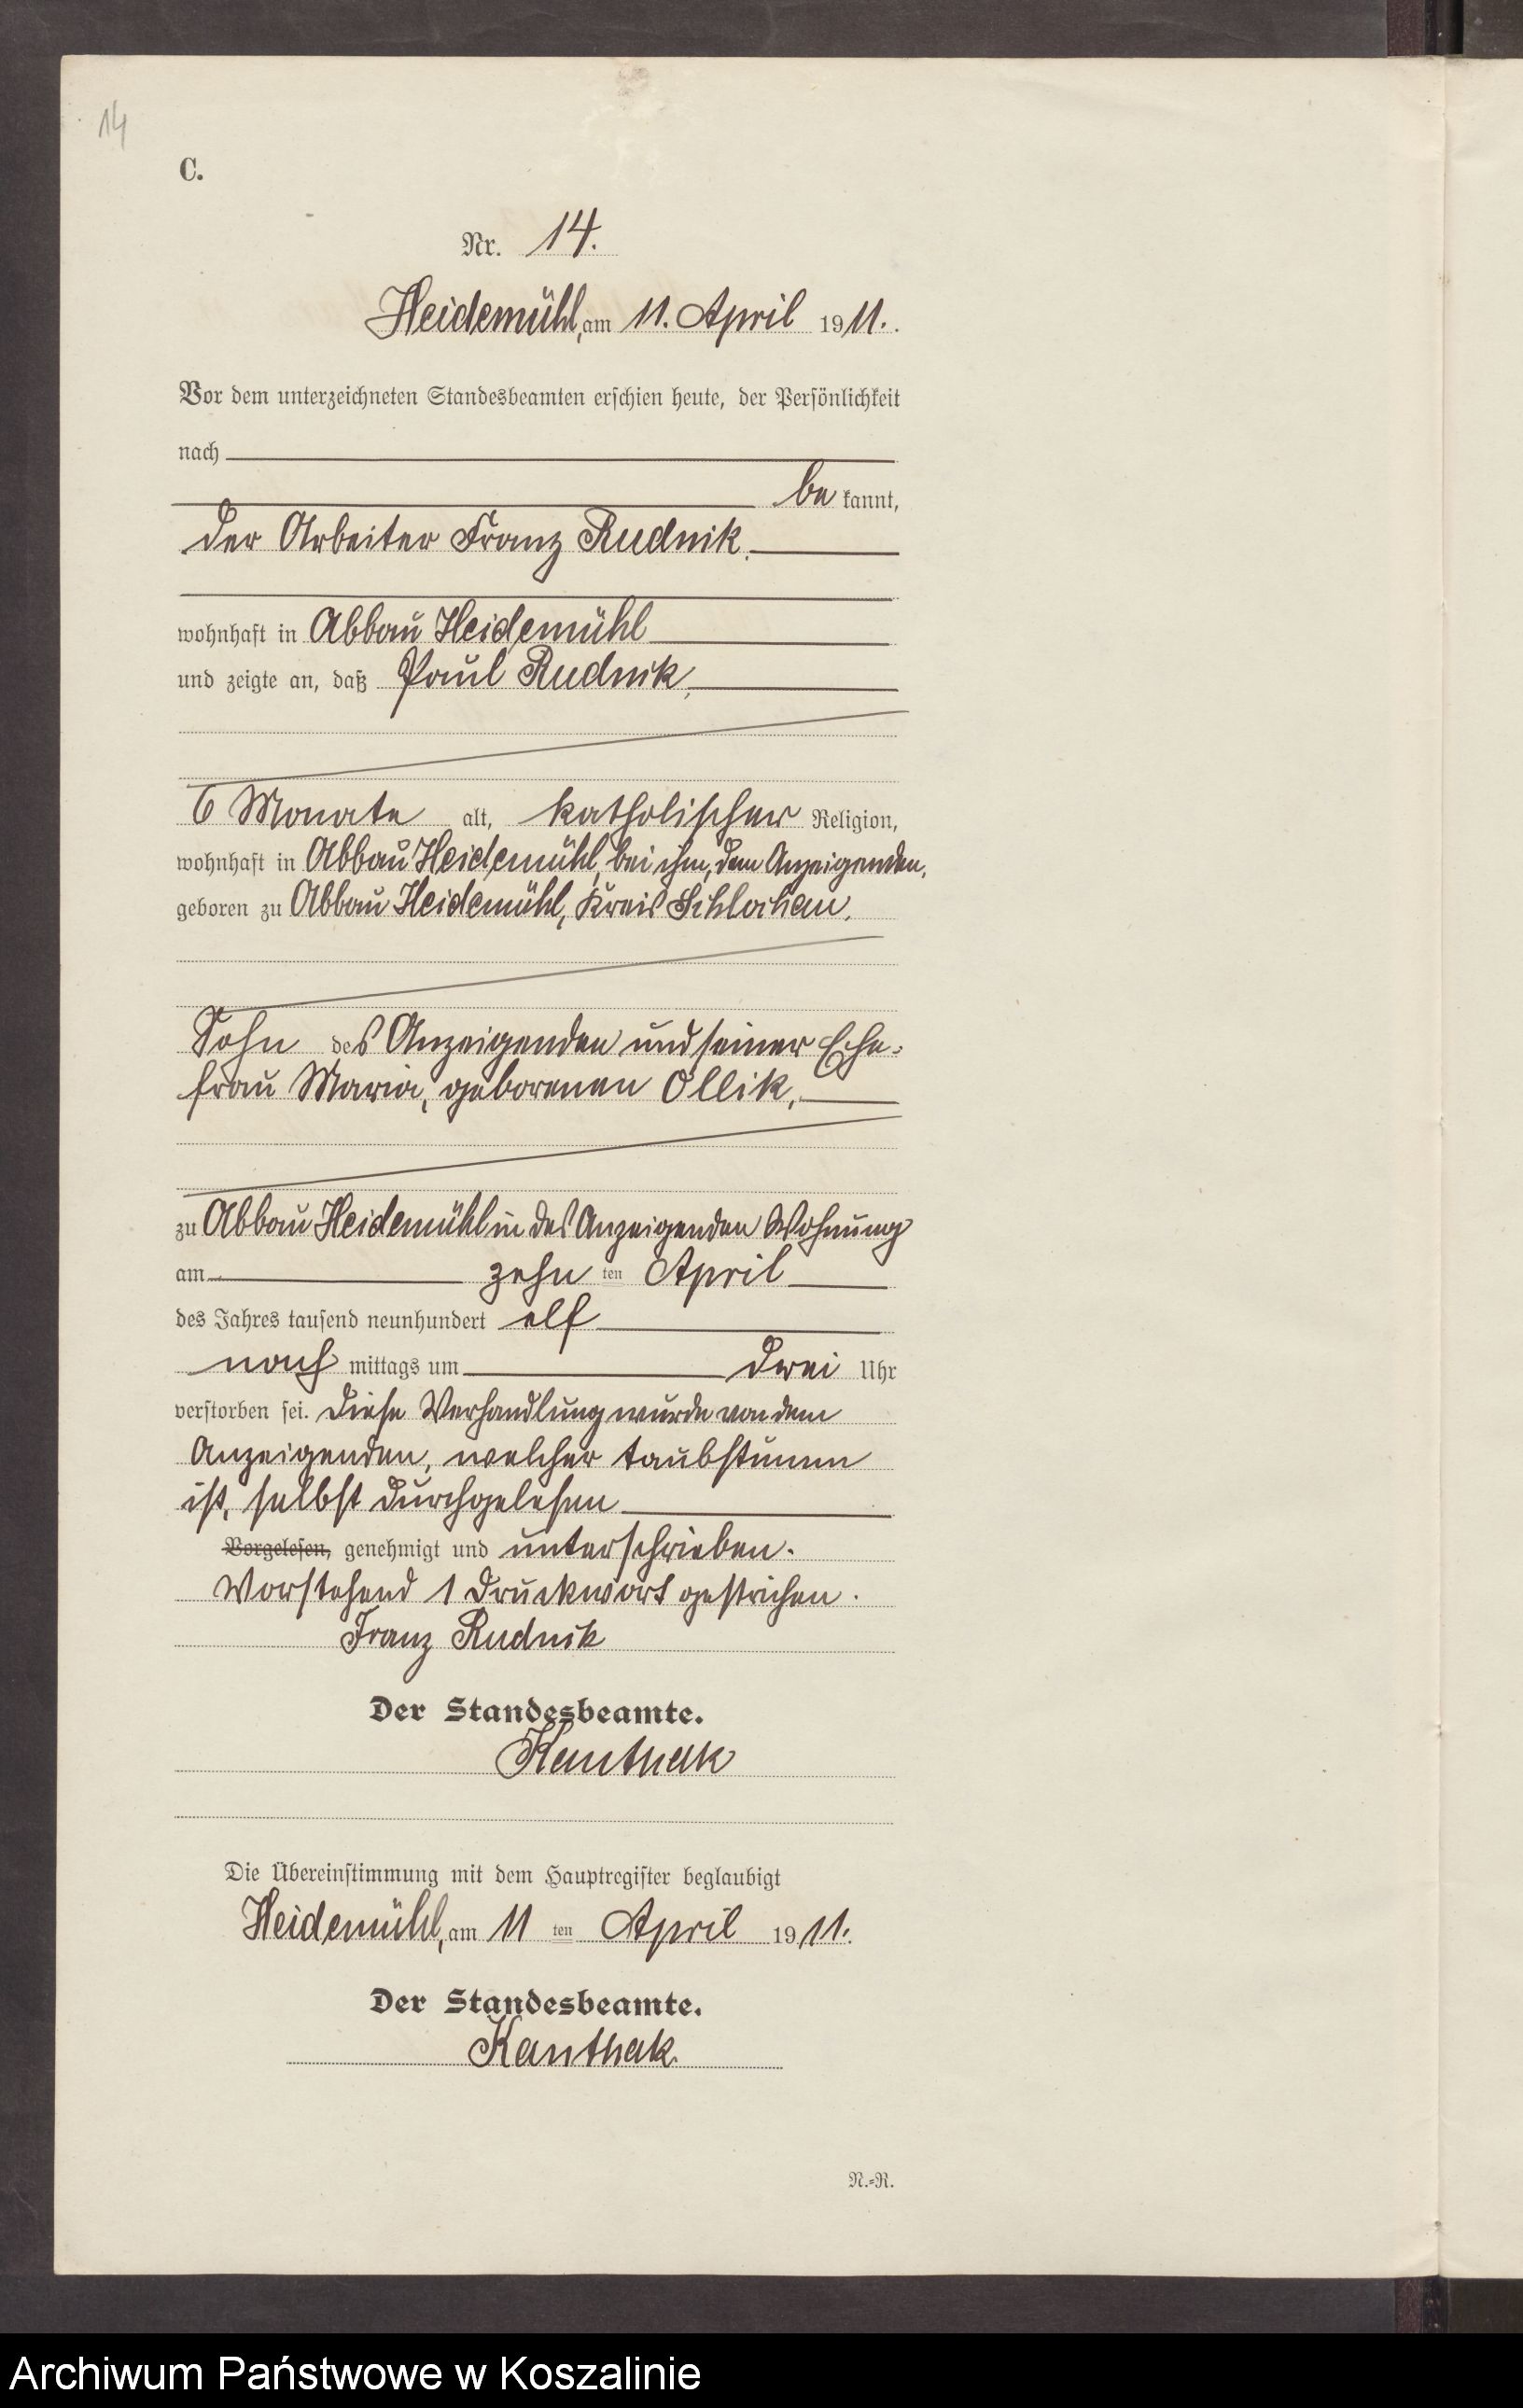 14
C.
Nr. 14.
Heidemühl, am 11. April 1911.
Vor dem unterzeichneten Standesbeamten erschien heute, der Persönlichkeit
nach
bekannt,
der Arbeiter Franz Rudnik,
wohnhaft in Abbau Heidemühl
und zeigte an, daß Paul Rudnik,
6 Monate alt, katholischer Religion,
wohnhaft in Abbau Heidemühl, bei ihm, dem Anzeigenden,
geboren zu Abbau Heidemühl, Kreis Schlochau,
Sohn des Anzeigenden und seiner Ehe-
frau Maria, geborenen Ollik,
zu Abbau Heidemühl in des Anzeigenden Wohnung
am zehnten April
des Jahres tausend neunhundert elf
nachmittags um drei Uhr
verstorben sei. Diese Verhandlung wurde von dem
Anzeigenden, welcher taubstumm
ist, selbst durchgelesen
Vorgelesen, genehmigt und unterschrieben.
Vorstehend 1 Druckwort gestrichen.
Franz Rudnik
Der Standesbeamte.
Kanthak
Die Übereinstimmung mit dem Hauptregister beglaubigt
Heidemühl, am 11ten April 1911.
Der Standesbeamte.
Kanthak
N.=R.
Archiwum Państwowe w Koszalinie